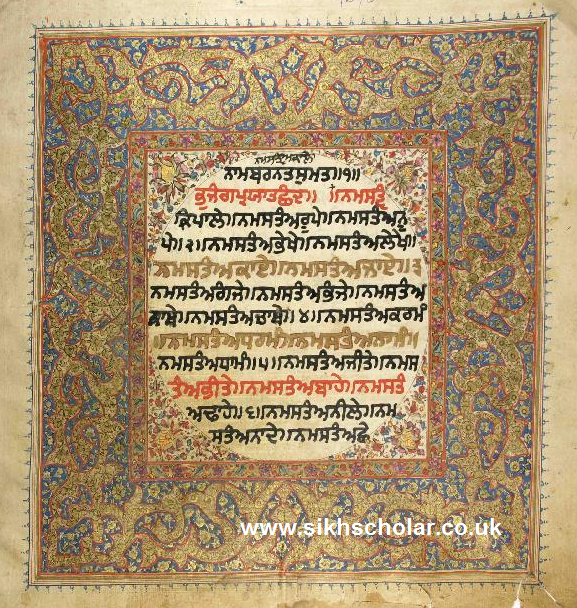 ਨਮਸਤੰਅਕਾਲੇ
ਨਾਮਬਰਨਤਸੁਮਤ॥੧॥
ਭੁਜੰਗਪ੍ਰਯਾਤਛੰਦ॥ ॥ਨਮਸਤੰ
ਕ੍ਰਿਪਾਲੇ॥ਨਮਸਤੰਅਰੂਪੇ॥ਨਮਸਤੰਅਨੂ
ਪੇ॥੨॥ਨਮਸਤੰਅਭੇਖੇ॥ਨਮਸਤੰਅਲੇਖੇ॥
ਨਮਸਤੰਅਕਾਏ॥ਨਮਸਤੰਅਜਾਏ॥੩
ਨਮਸਤੰਅਗੰਜੇ॥ਨਮਸਤੰਅਭੰਜੇ॥ਨਮਸਤੰਅ
ਨਾਮੇ॥ਨਮਸਤੰਅਠਾਮੇ॥੪॥ਨਮਸਤੰਅਕਰਮੰ
॥ਨਮਸਤੰਅਧਰਮੰ॥ਨਮਸਤੰਅਨਾਮੰ॥
ਨਮਸਤੰਅਧਾਮੰ॥੫॥ਨਮਸਤੰਅਜੀਤੇ॥ਨਮਸ
ਤੰਅਭੀਤੇ॥ਨਮਸਤੰਅਬਾਹੇ॥ਨਮਸਤੰ
ਅਢਾਹੇ॥੬॥ਨਮਸਤੰਅਨੀਲੇ॥ਨਮ
ਸਤੰਅਨਾਦੇ॥ਨਮਸਤੰਅਛੇ
www.sikhscholar.co.uk